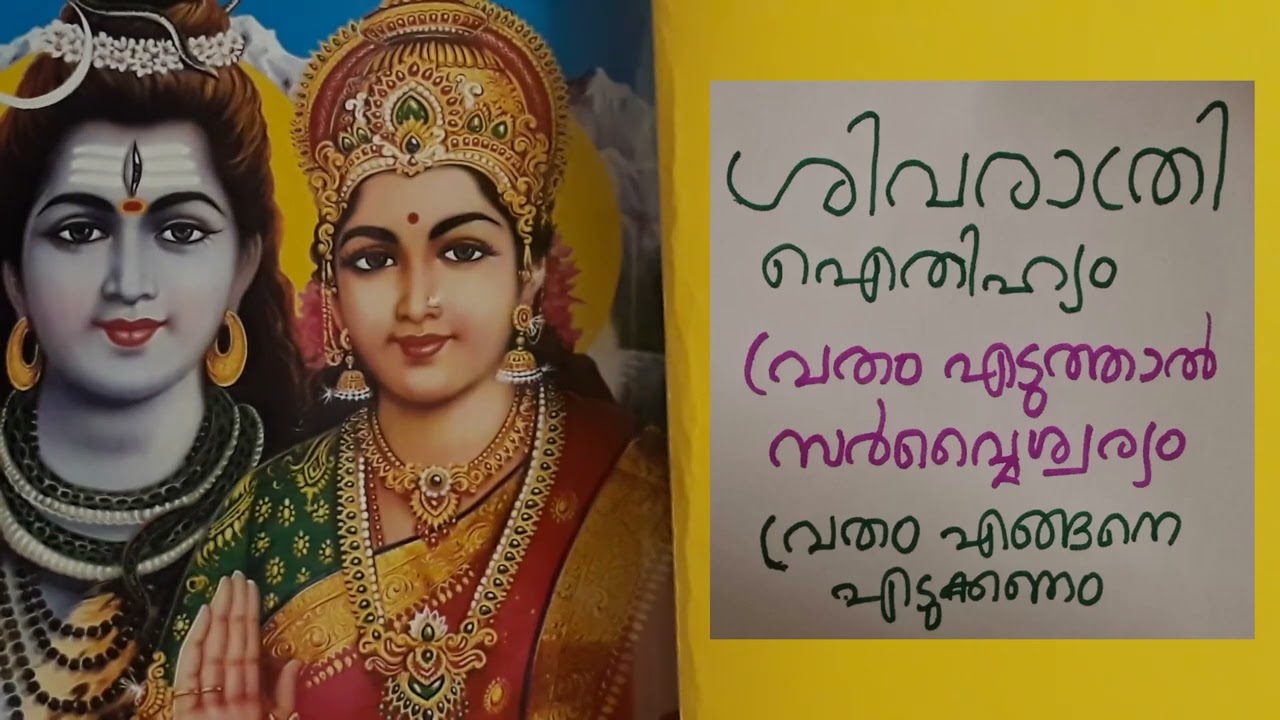 ശിവരാത്രി
ഐതിഹ്യം
വ്രതം എടുത്താൽ
സർവ്വൈശ്വര്യം
വ്രതം എങ്ങനെ
എടുക്കണം